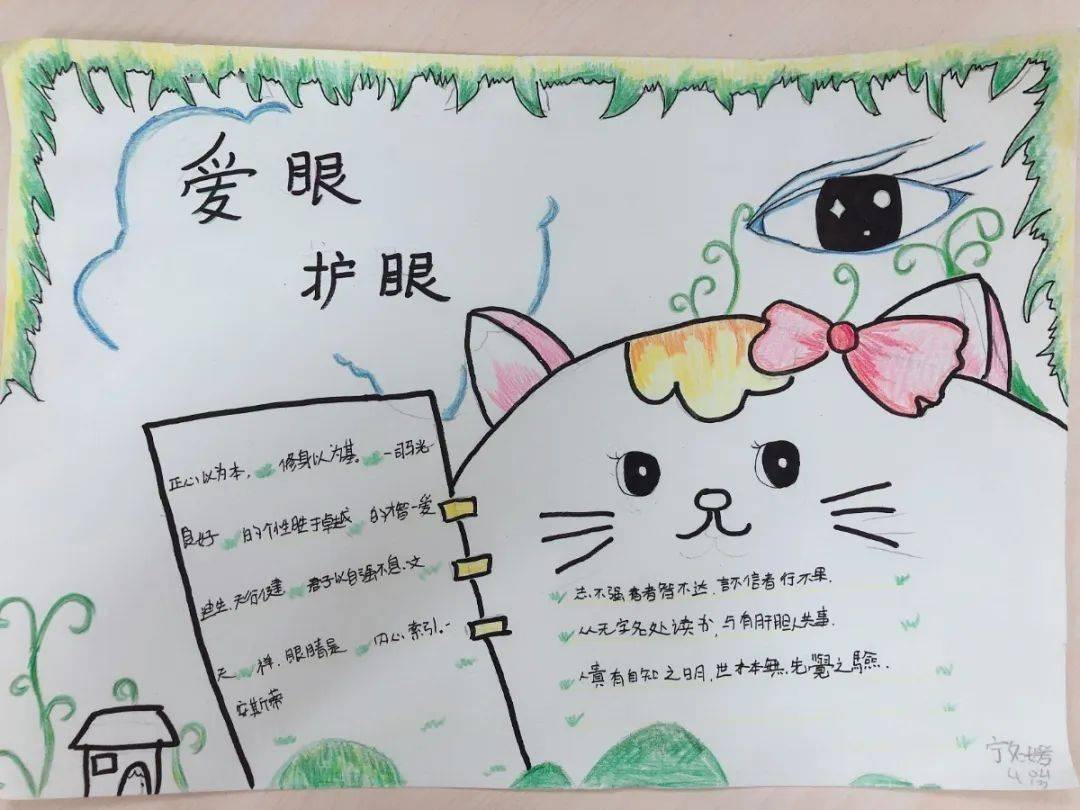 爱眼
护眼
正心以为本, 修身以为基。-司马光
良好 的个性胜于卓越 的才智-爱
迪生.天行健 君子以自强不息.文
天 祥.眼睛是 内心 索引。-
安斯蒂
志不强者智不达,言不信者行不果.
从无字名处读书,与有肝胆人共事.
人贵有自知之明,世本無先覺之驗.
宁